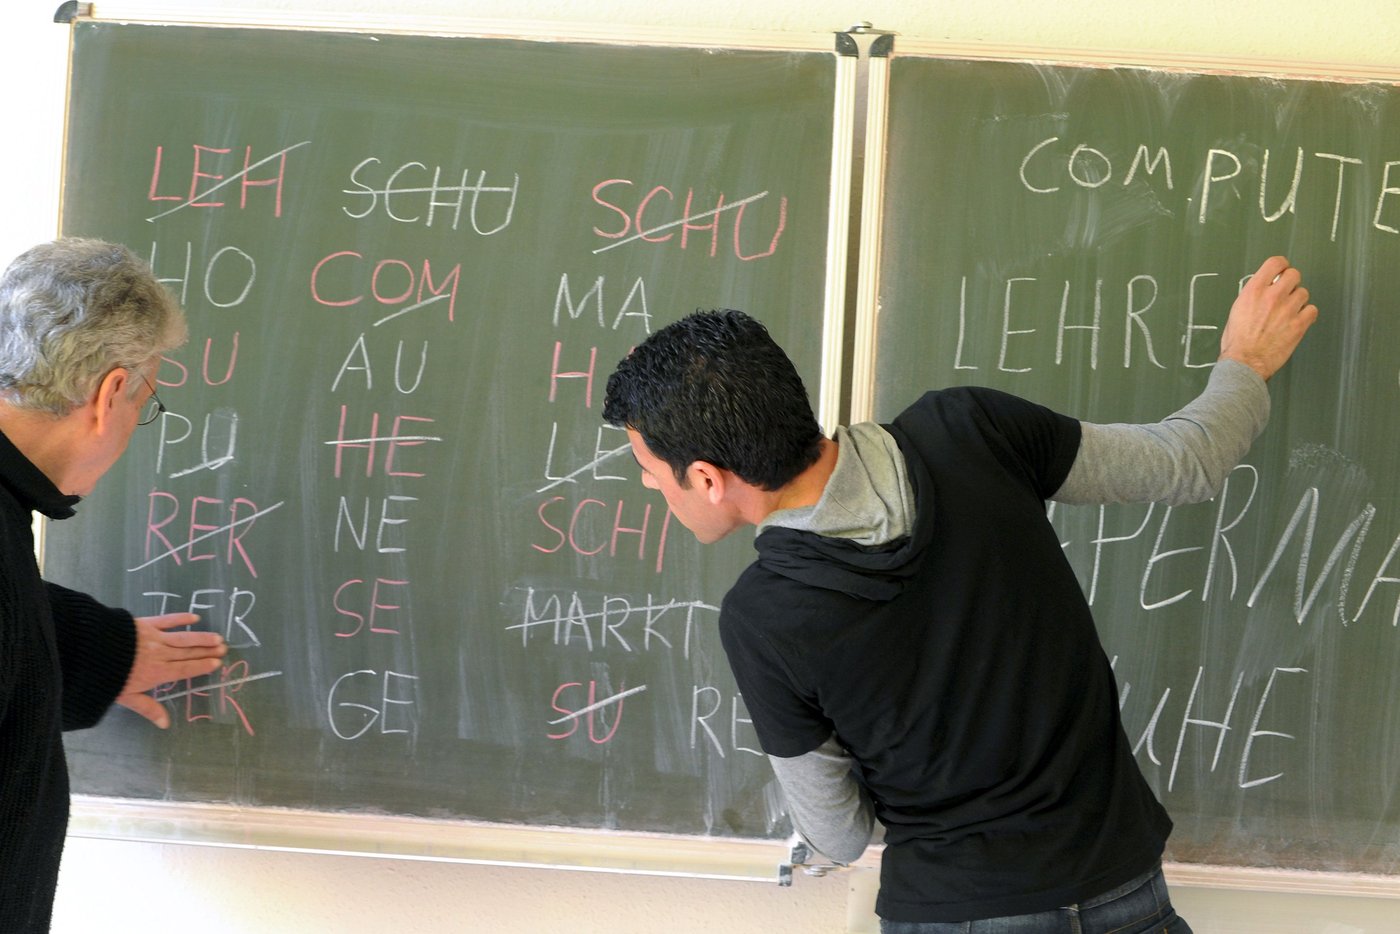 LEH SCHU SCHU
HO COM MA
SU AU H
PU HE LE
RER NE SCHI
TER SE MARKT
PER GE SU RE
COMPUTE
LEHRER
PERNA
UHE